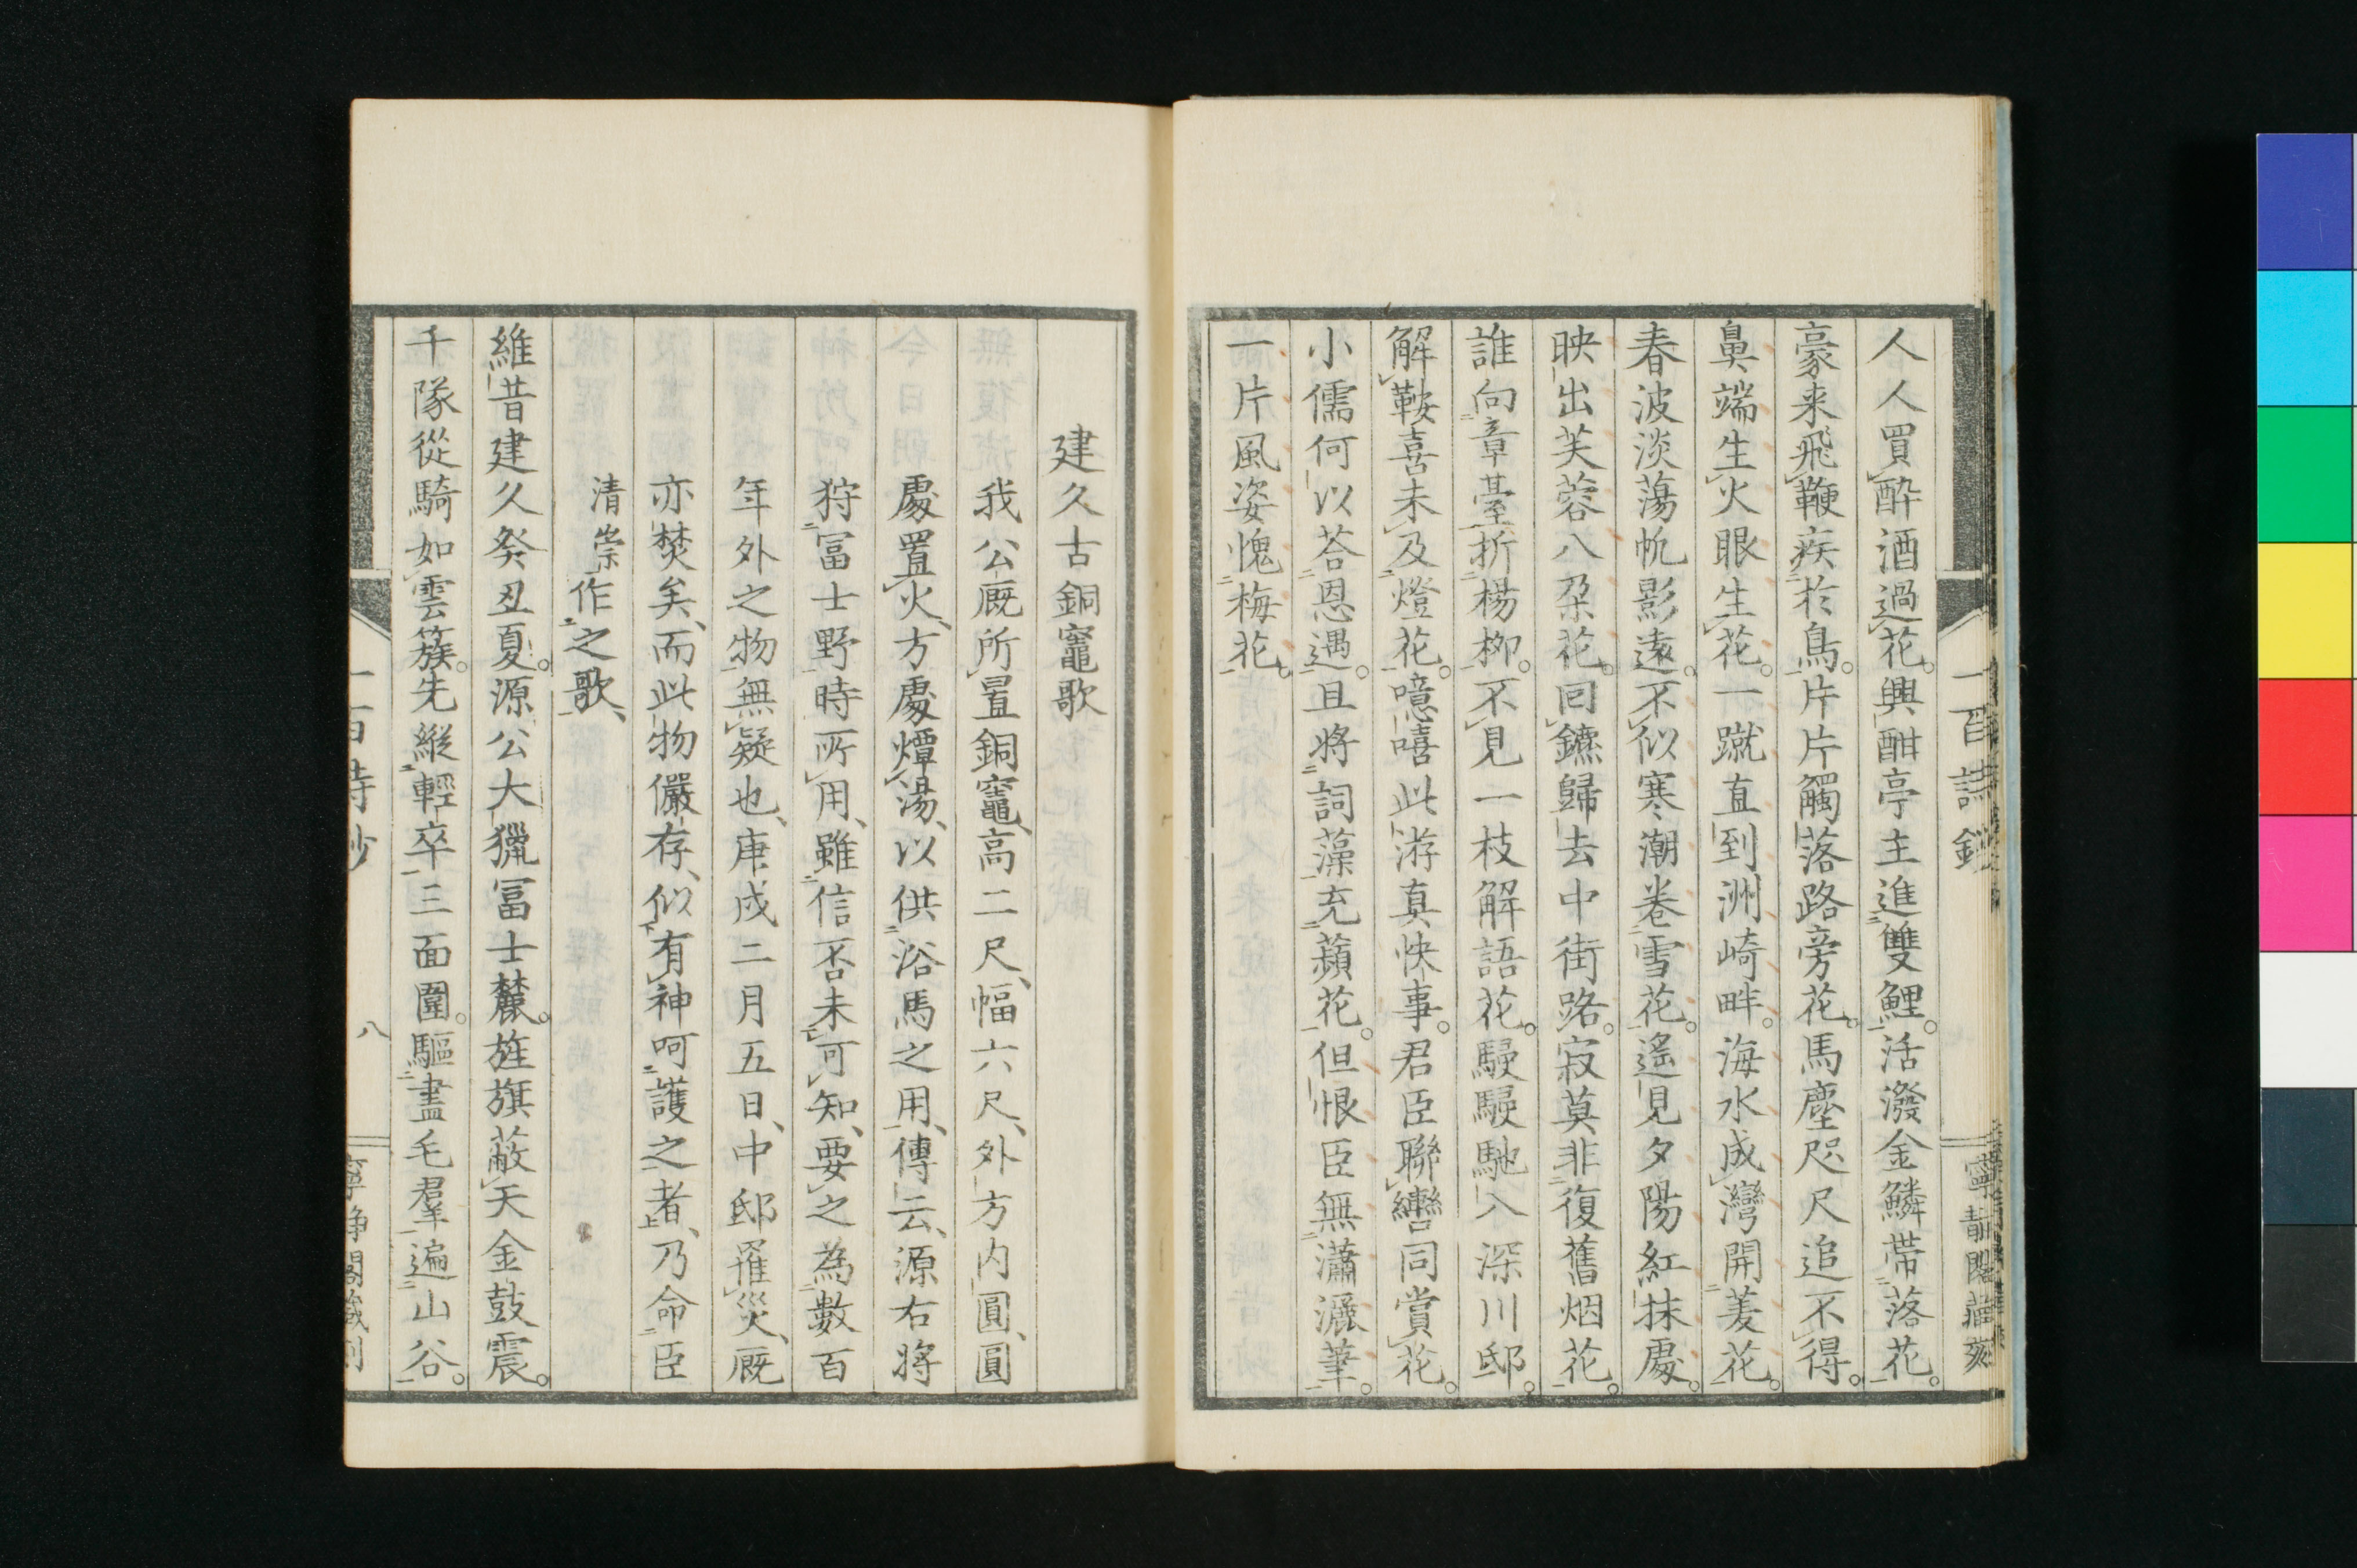 人人買酔酒過花。興酣亭主進雙鯉。活潑金鱗帶落花。
豪来飛鞭疾於鳥。片片觸落路旁花。馬塵咫尺追不得。
鼻端生火眼生花。一蹴直到洲崎畔。海水成灣開蓤花。
春波淡蕩帆影遠。不似寒潮卷雪花。遙見夕陽紅抹處。
映出芙蓉八朶花。回鑣歸去中街路。寂莫非復舊烟花。
誰向章臺折楊柳。不見一枝解語花。駸駸馳入深川邸。
解鞍喜未及燈花。噫嘻此游真快事。君臣聯轡同賞花。
小儒何以荅恩遇。且將詞藻充蘋花。但恨臣無瀟灑筆。
一片風姿愧梅花。
二百詩鈔
寧靜閣藏
建久古銅竈歌
我公厩所置銅竈、高二尺、幅六尺、外方内圓、圓
處置火、方處燂湯、以供浴馬之用、傳云、源右將
狩冨士野時所用、雖信否未可知、要之為數百
年外之物無疑也、庚戌二月五日、中邸罹災、厩
亦焚矣、而此物儼存、似有神呵護之者、乃命臣
清崇作之歌、
維昔建久癸丑夏。源公大獵冨士麓。旌旗蔽天金鼓震。
千隊從騎如雲簇。先縱輕卒三面圍。驅盡毛羣遍山谷。
八